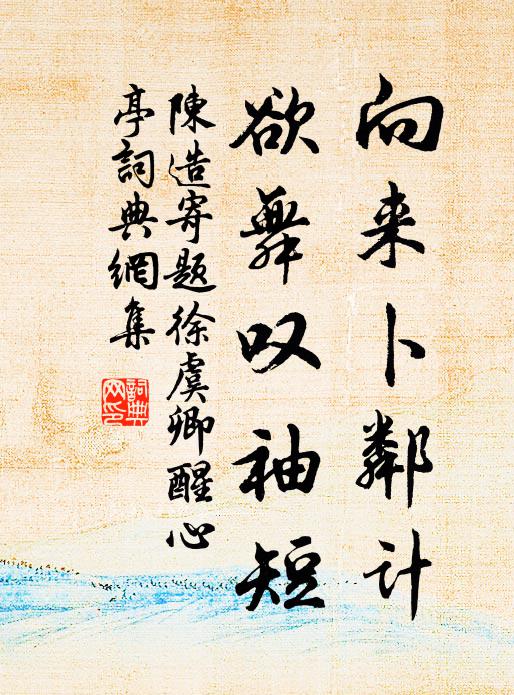 向来卜鄰计
欲舞叹袖短
陳造寄題徐虞卿醒心
亭詞典網集
詞典
网印